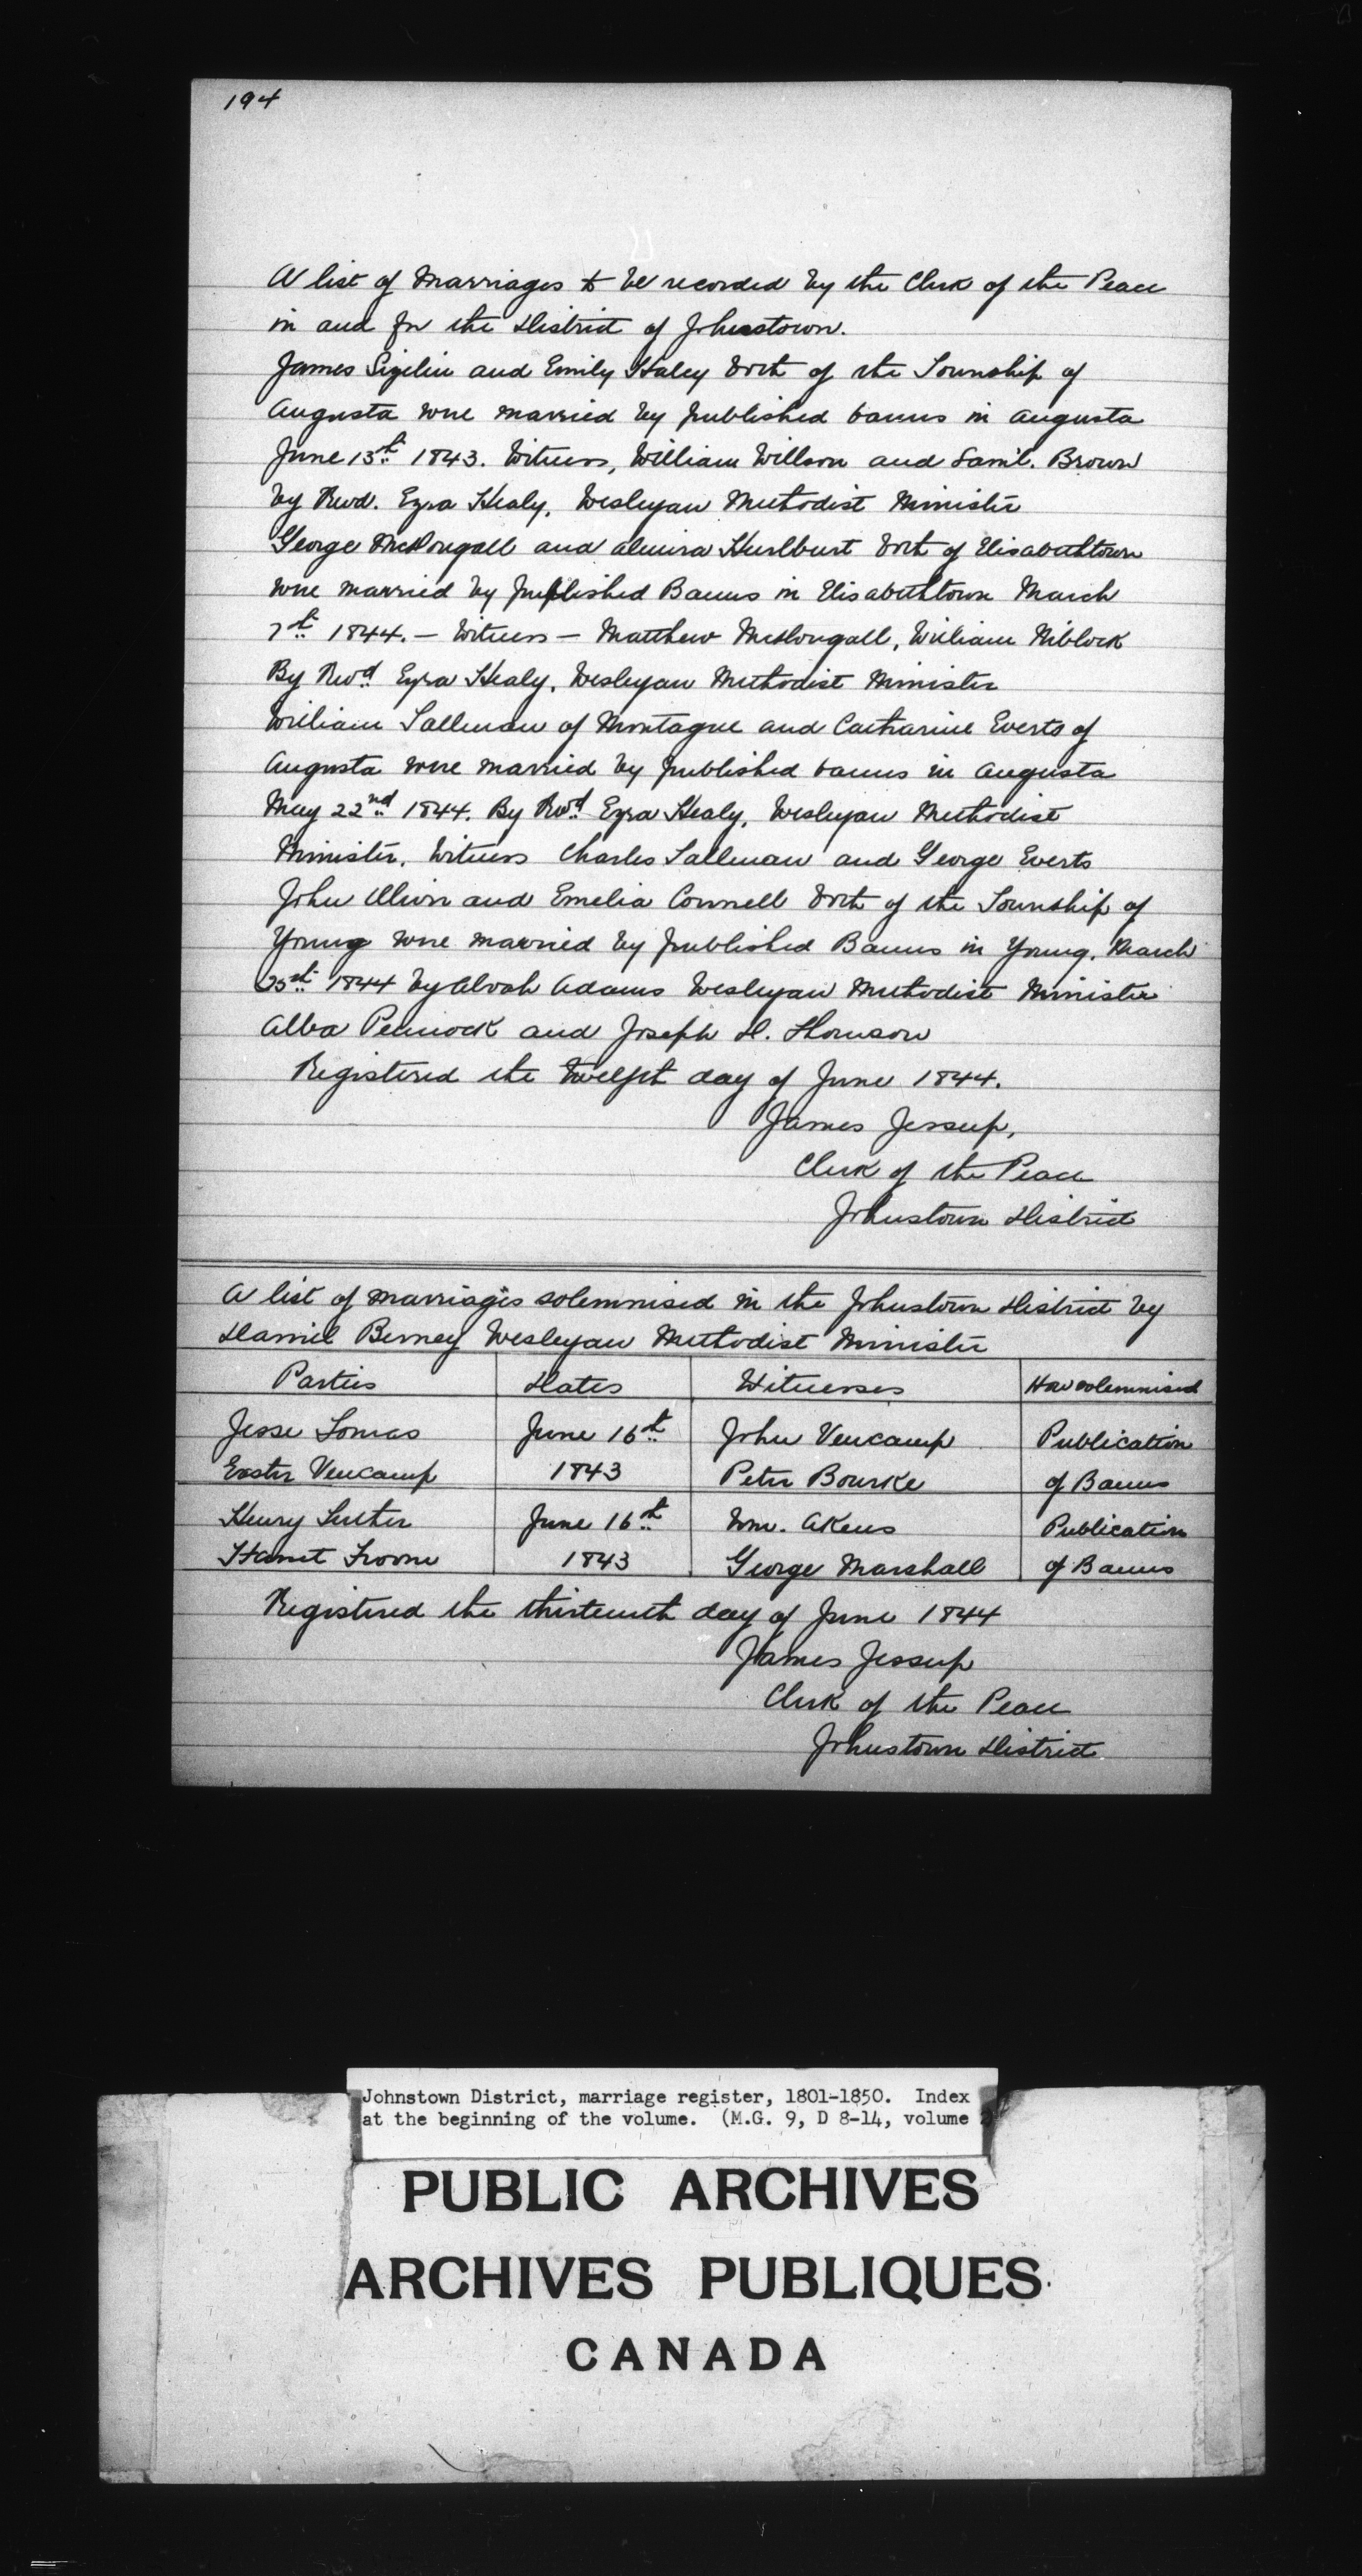 194
A list of Marriages to be recorded by the Clerk of the Peace
in and for the District of Johnstown.
James and Emily Haley both of the Township of
Augusta were married by published banns in Augusta
June 13th 1843. Witness, William Willson and Saml. Brown
by Revd. Ezra Healy, Wesleyan Methodist Minister
George McDougall and Almira Hurlburt both of Elisabethtown
were married by published Banns in Elisabethtown March
7th 1844. — Witness — Matthew McDougall, William Niblock
By Revd Ezra Healy, Wesleyan Methodist Minister
William Tallman of Montague and Catharine Everts of
Augusta were married by published banns in Augusta
May 22nd 1844. By Revd Ezra Healy, Wesleyan Methodist
Minister. Witness Charles Tallman and George Everts
John and Emelia Connell both of the Township of
Young were married by published Banns in Young. March
25th 1844 by Alvah Adams Wesleyan Methodist Minister
Alba Pennock and Joseph H. Thomson
Registered the twelfth day of June 1844.
James Jessup,
Clerk of the Peace
Johnstown District
A list of marriages solemnised in the Johnstown District by
Daniel Berney Wesleyan Methodist Minister
Parties Dates Witnesses How solemnised
Jesse Lomas June 16th John Vencamp Publication
Ester Vencamp 1843 Peter Bourke of Banns
Henry June 16th Wm. Akens Publication
1843 George Marshall of Banns
Registered the thirteenth day of June 1844
James Jessup
Clerk of the Peace
Johnstown District
Johnstown District, marriage register, 1801-1850. Index
at the beginning of the volume. (M.G. 9, D 8-14, volume
PUBLIC ARCHIVES
ARCHIVES PUBLIQUES
CANADA